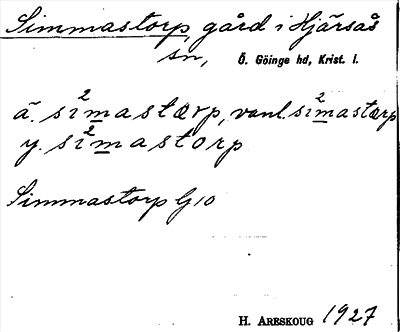 Simmastorp, gård i Hjärsås
sn, Ö. Göinge hd, Krist. l.
ä. si²mastɑrp, vanl. si²mastɑrp
y. si²mastorp
Simmastorp G 10
H. ARESKOUG 1927